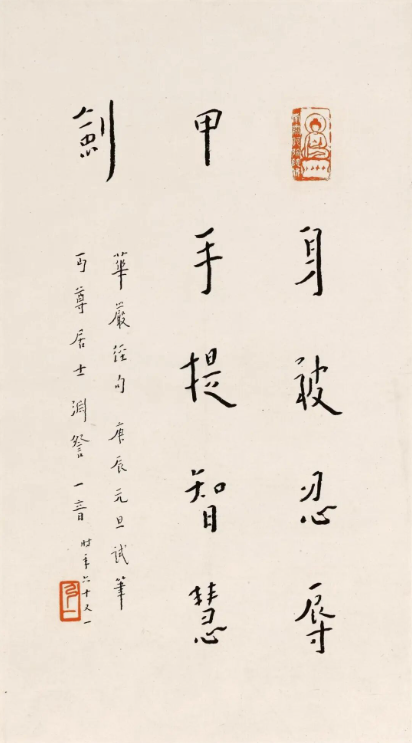 身被忍辱
甲手提智慧
劍
華嚴經句 庚辰元旦試筆
丏尊居士淵詧 一音 时年六十又一